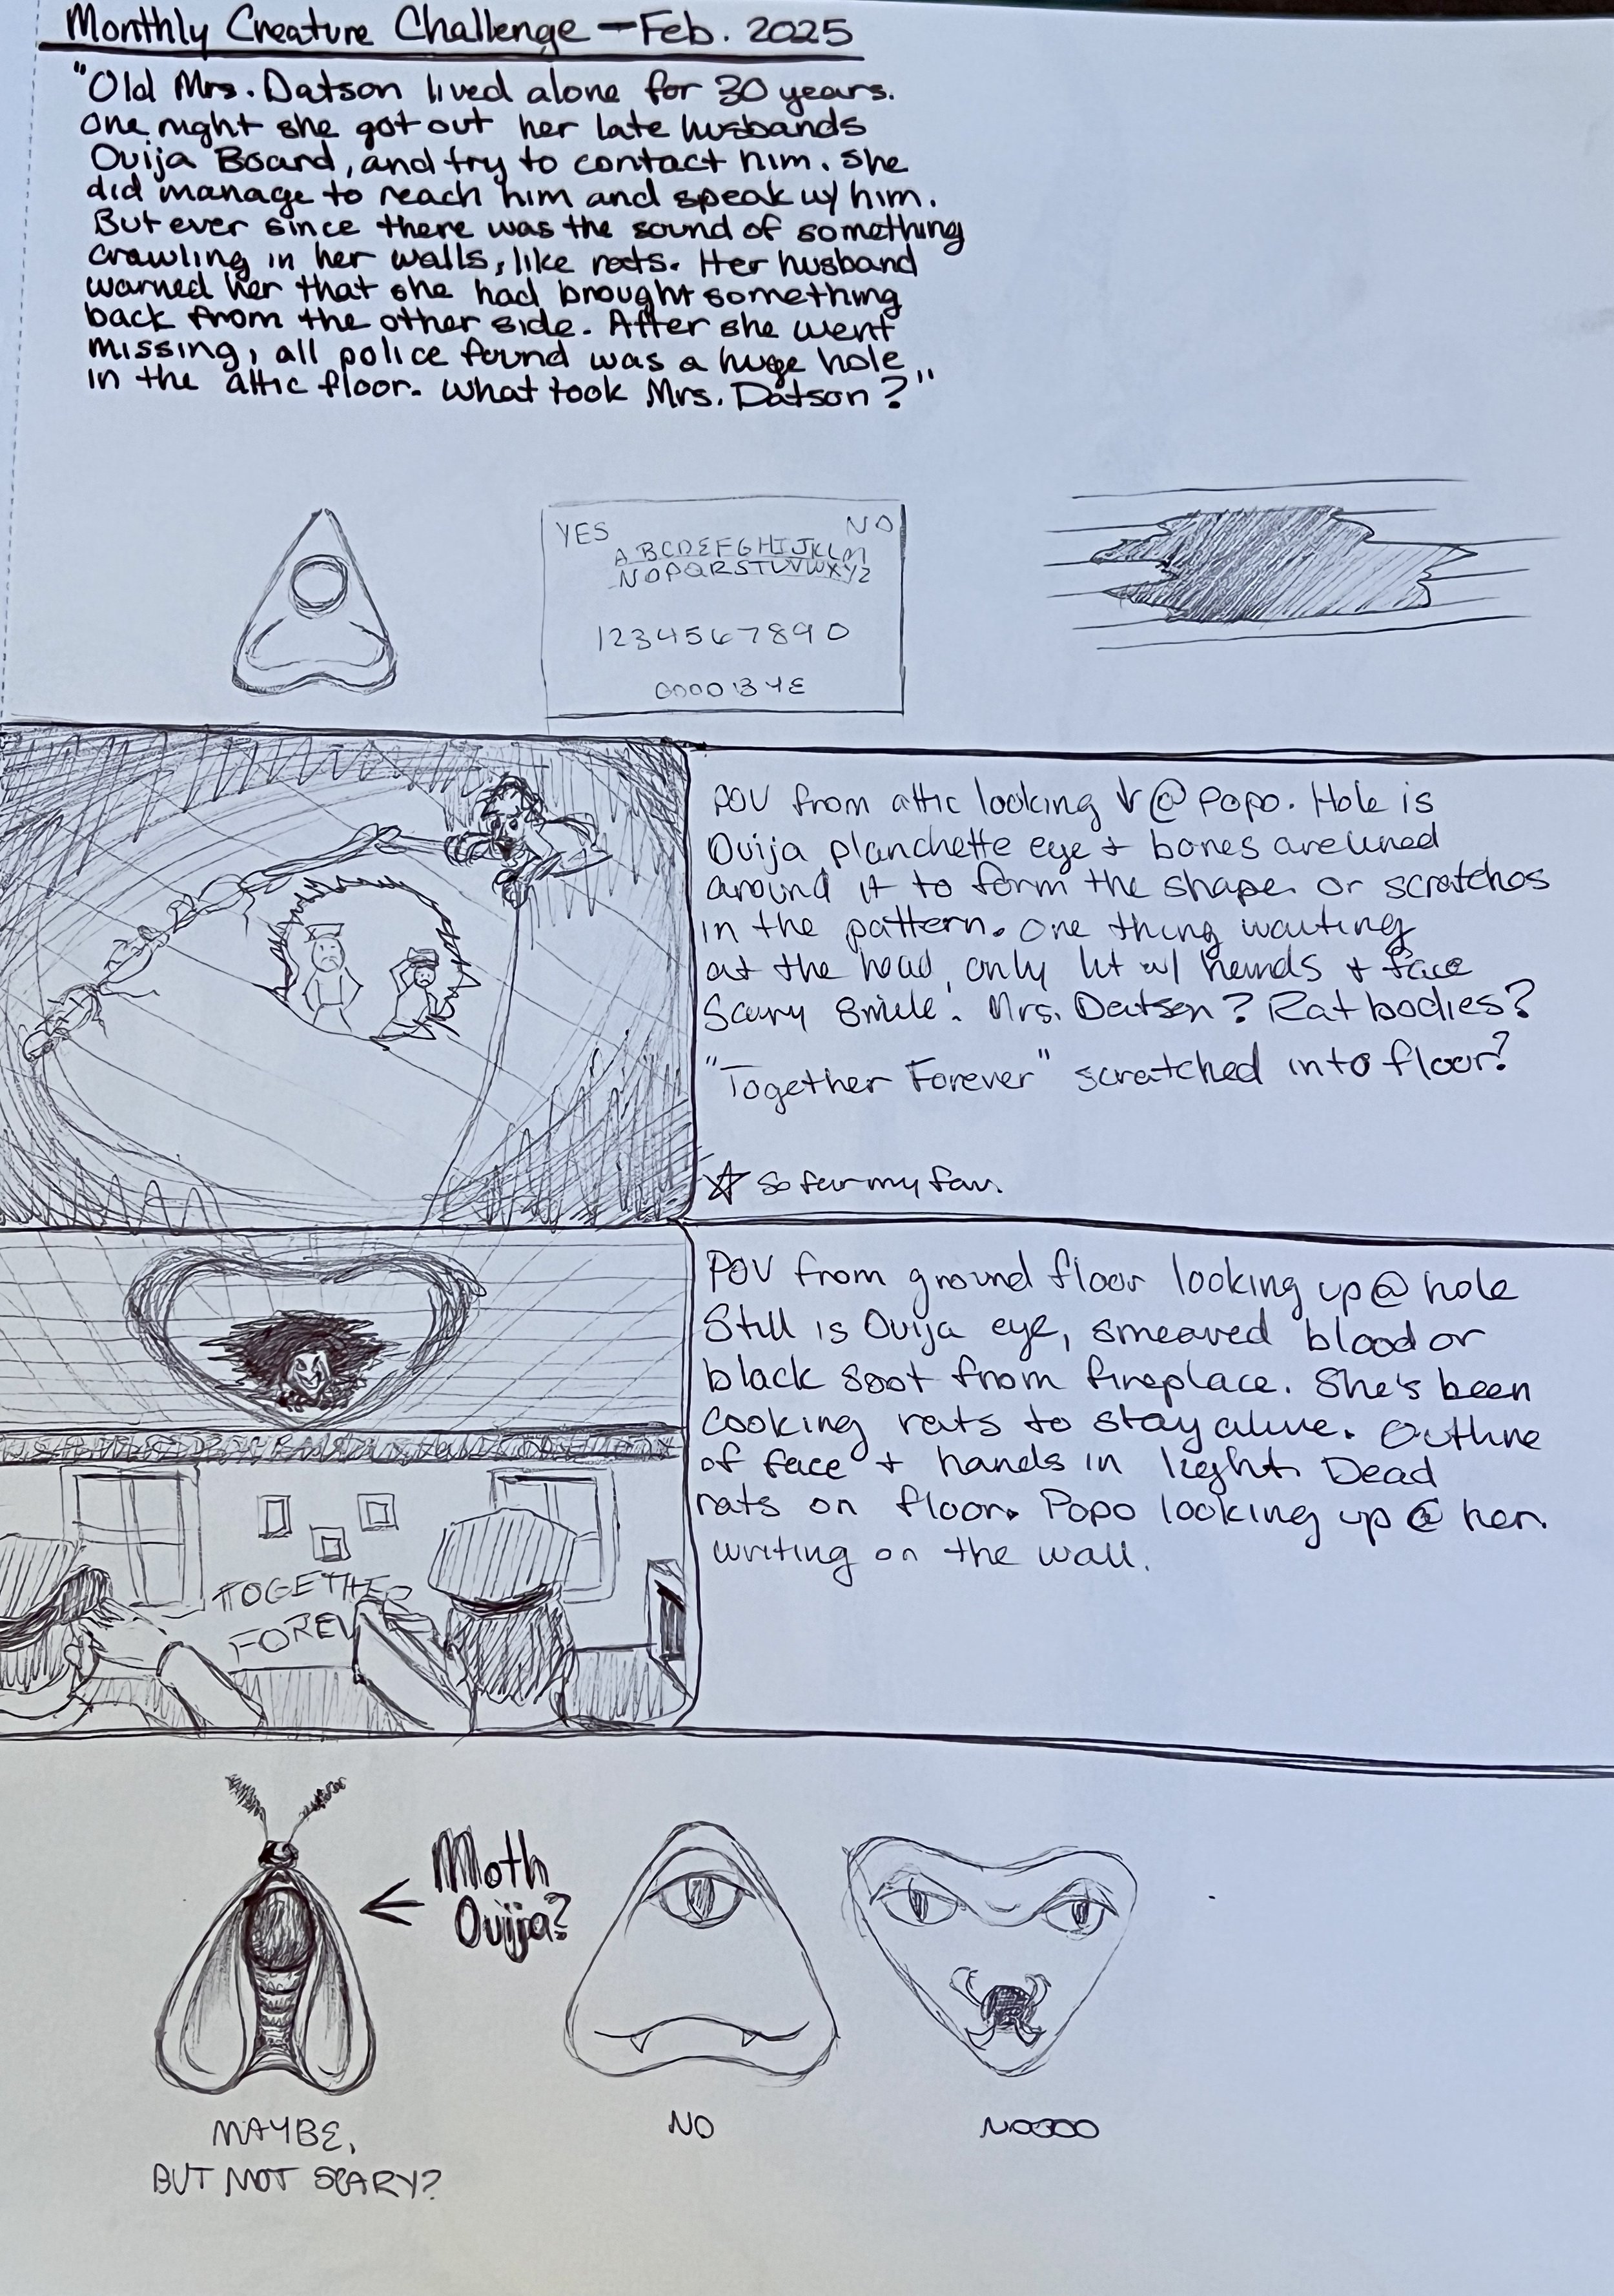 Monthly Creature Challenge - Feb. 2025
"Old Mrs. Datson lived alone for 30 years.
One night she got out her late husbands
Ouija Board, and try to contact him. She
did manage to reach him and speak w/ him.
But ever since there was the sound of something
crawling in her walls, like rats. Her husband
warned her that she had brought something
back from the other side. After she went
missing, all police found was a huge hole
in the attic floor. What took Mrs. Datson?"
YES NO
ABCDEFGHIJKLM
NOPQRSTUVWXYZ
1234567890
GOODBYE
POV from attic looking ↓ @ Popo. Hole is
Ouija planchette eye + bones are lined
around it to form the shape or scratches
in the pattern. One thing waiting
at the head, only lit w/ hands + face
Scary smile. Mrs. Datson? Rat bodies?
"Together Forever" scratched into floor?
☆ So far my fav.
POV from ground floor looking up @ hole
Still is Ouija eye, smeared blood or
black soot from fireplace. She's been
cooking rats to stay alive. Outline
of face + hands in light. Dead
rats on floor. Popo looking up @ her.
writing on the wall.
TOGETHER
FOREV
← Moth
Ouija?
MAYBE,
BUT NOT SCARY?
NO
NOOOO